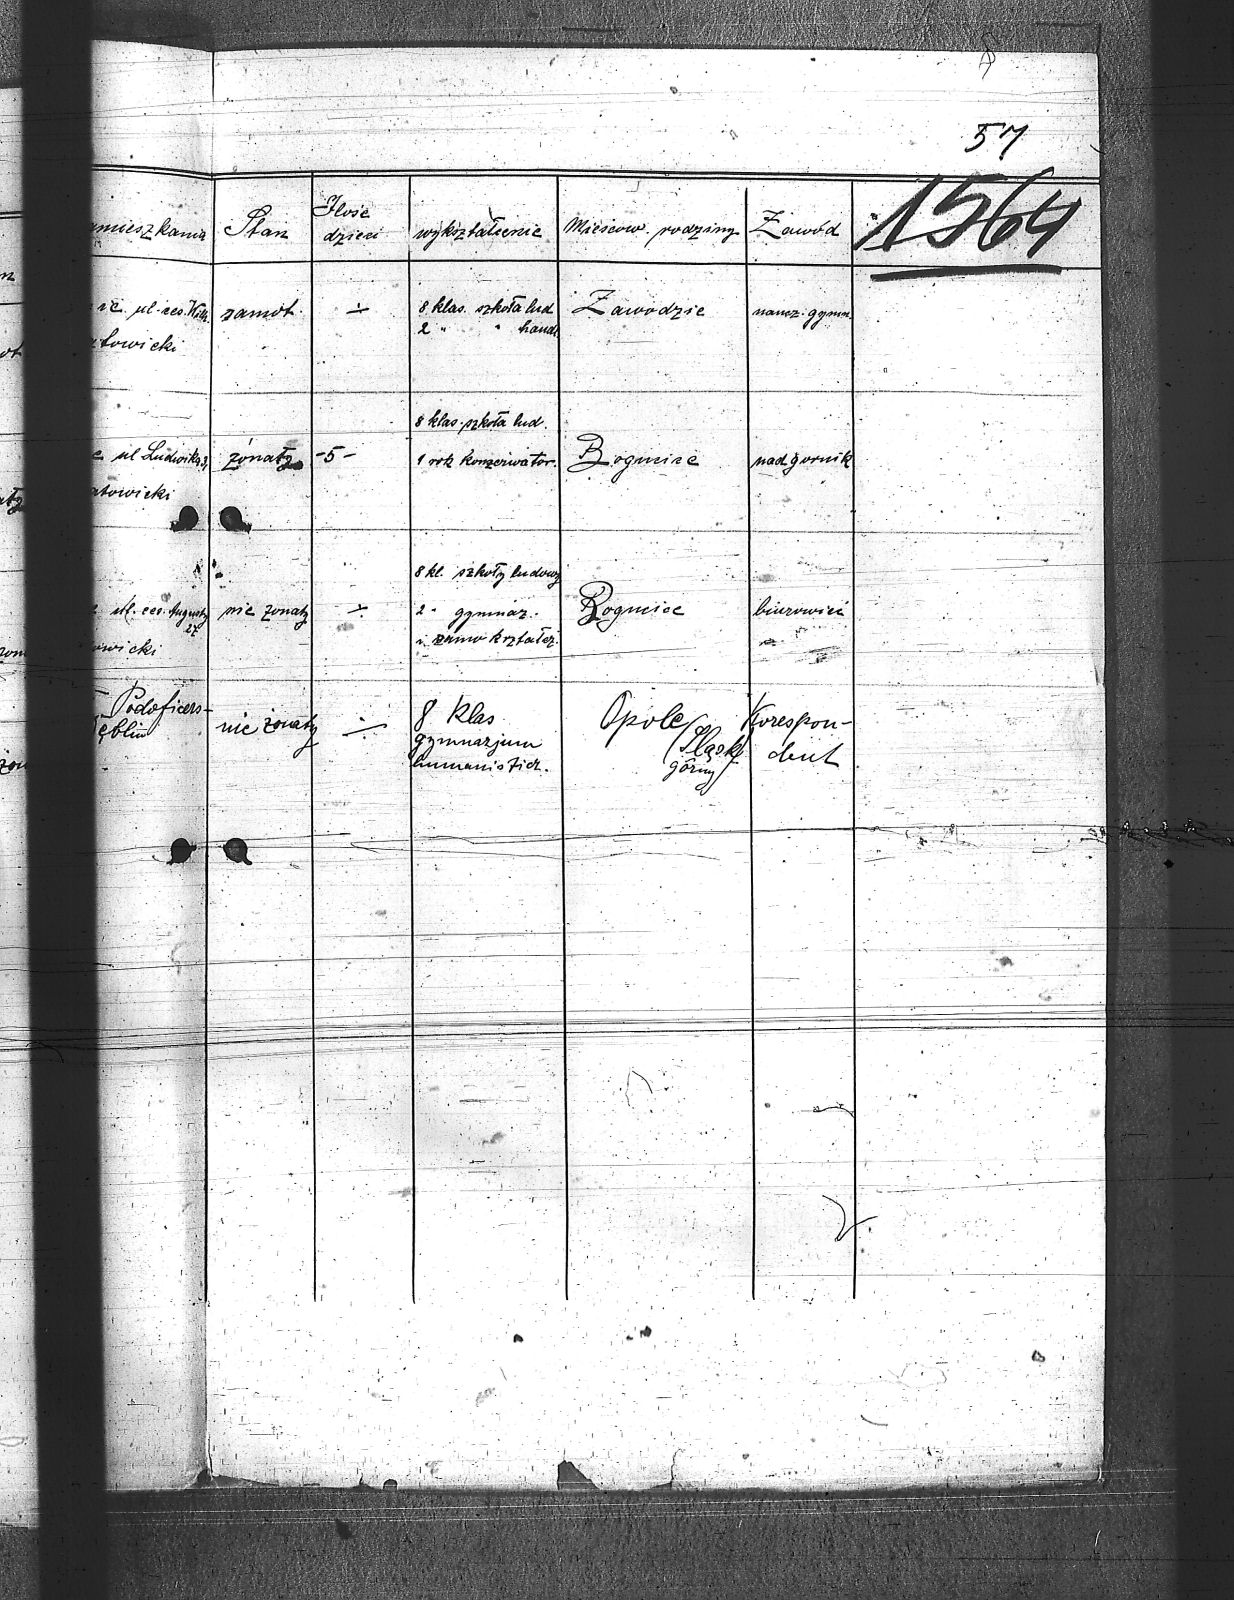 57
1564
mieszkania Stan Ilość dzieci wykształcenie Miejscow. rodziny Zawód
ie ul. ces. Wilh. zamoż. ÷ 8 klas. szkoła lud Zawodzie naucz. gymn.
towicki 2 " " handl.
8 klas. szkoła lud.
ul Ludwika 3, żonaty -5- 1 rok konserwator. Bogucice nadgórnik
atowicki
8 kl. szkoły ludowej
ul. ces. Augusty 27 nie żonaty ÷ 2 " gymnaz. Bogucice biurowiec
owicki i samokształc.
Podoficers- nie żonaty ÷ 8 klas Opole Korespon-
ęblin gymnazjum (Śląsk dent
humanisticz. górny)